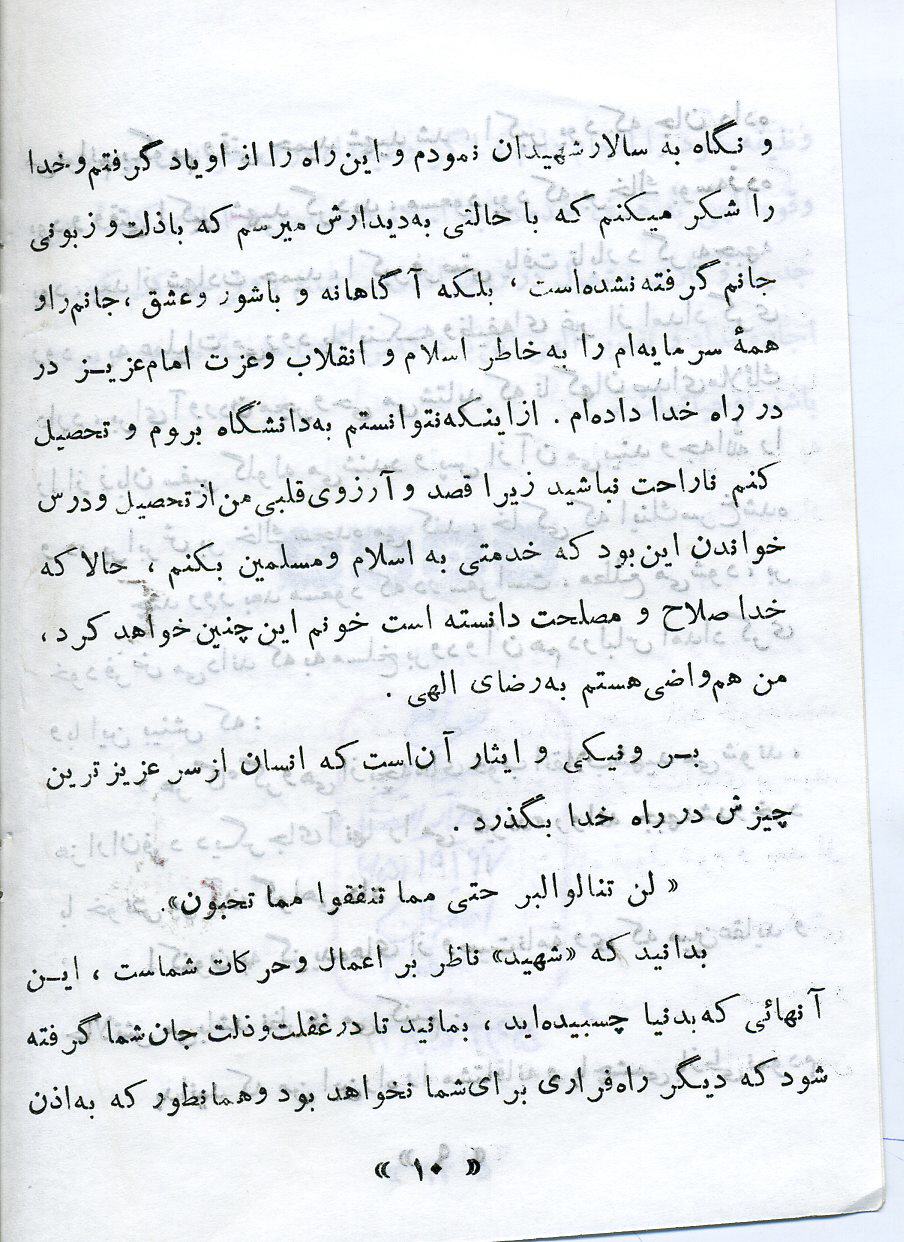 و نگاه به سالارشهیدان نمودم و این راه را از اویاد گرفتم و خدا
را شکر میکنم که با حالتی به‌دیدارش میرسم که باذلت و زبونی
جانم گرفته نشده‌است ، بلکه آگاهانه و باشور وعشق ،جانم‌راو
همهٔ سرمایه‌ام را به‌خاطر اسلام و انقلاب وعزت امام‌عزیز در
در راه خدا داده‌ام . ازاینکه‌نتوانستم به‌دانشگاه بروم و تحصیل
کنم ناراحت نباشید زیرا قصد و آرزوی‌قلبی‌من از تحصیل و درس
خواندن این‌بود که خدمتی به اسلام ومسلمین بکنم ، حالا که
خدا صلاح و مصلحت دانسته است خونم این‌چنین‌خواهد کرد ،
من هم‌واضی‌هستم به‌رضای الهی .
بـر ونیکی و ایثار آن‌است که انسان ازسر عزیزترین
چیزش در راه خدا بگذرد .
« لن تنالوالبر حتی مما تنفقوا مما تحبون».
بدانید که «شهید» ناظر بر اعمال وحرکات شماست ، این
آنهائی که‌بدنیا چسبیده‌اید ، بمانید تا درغفلت‌وذلت جان‌شما گرفته
شود که دیگر راه‌فراری برای‌شما نخواهد بود وهمانطور که به‌اذن
« ۱۰ »